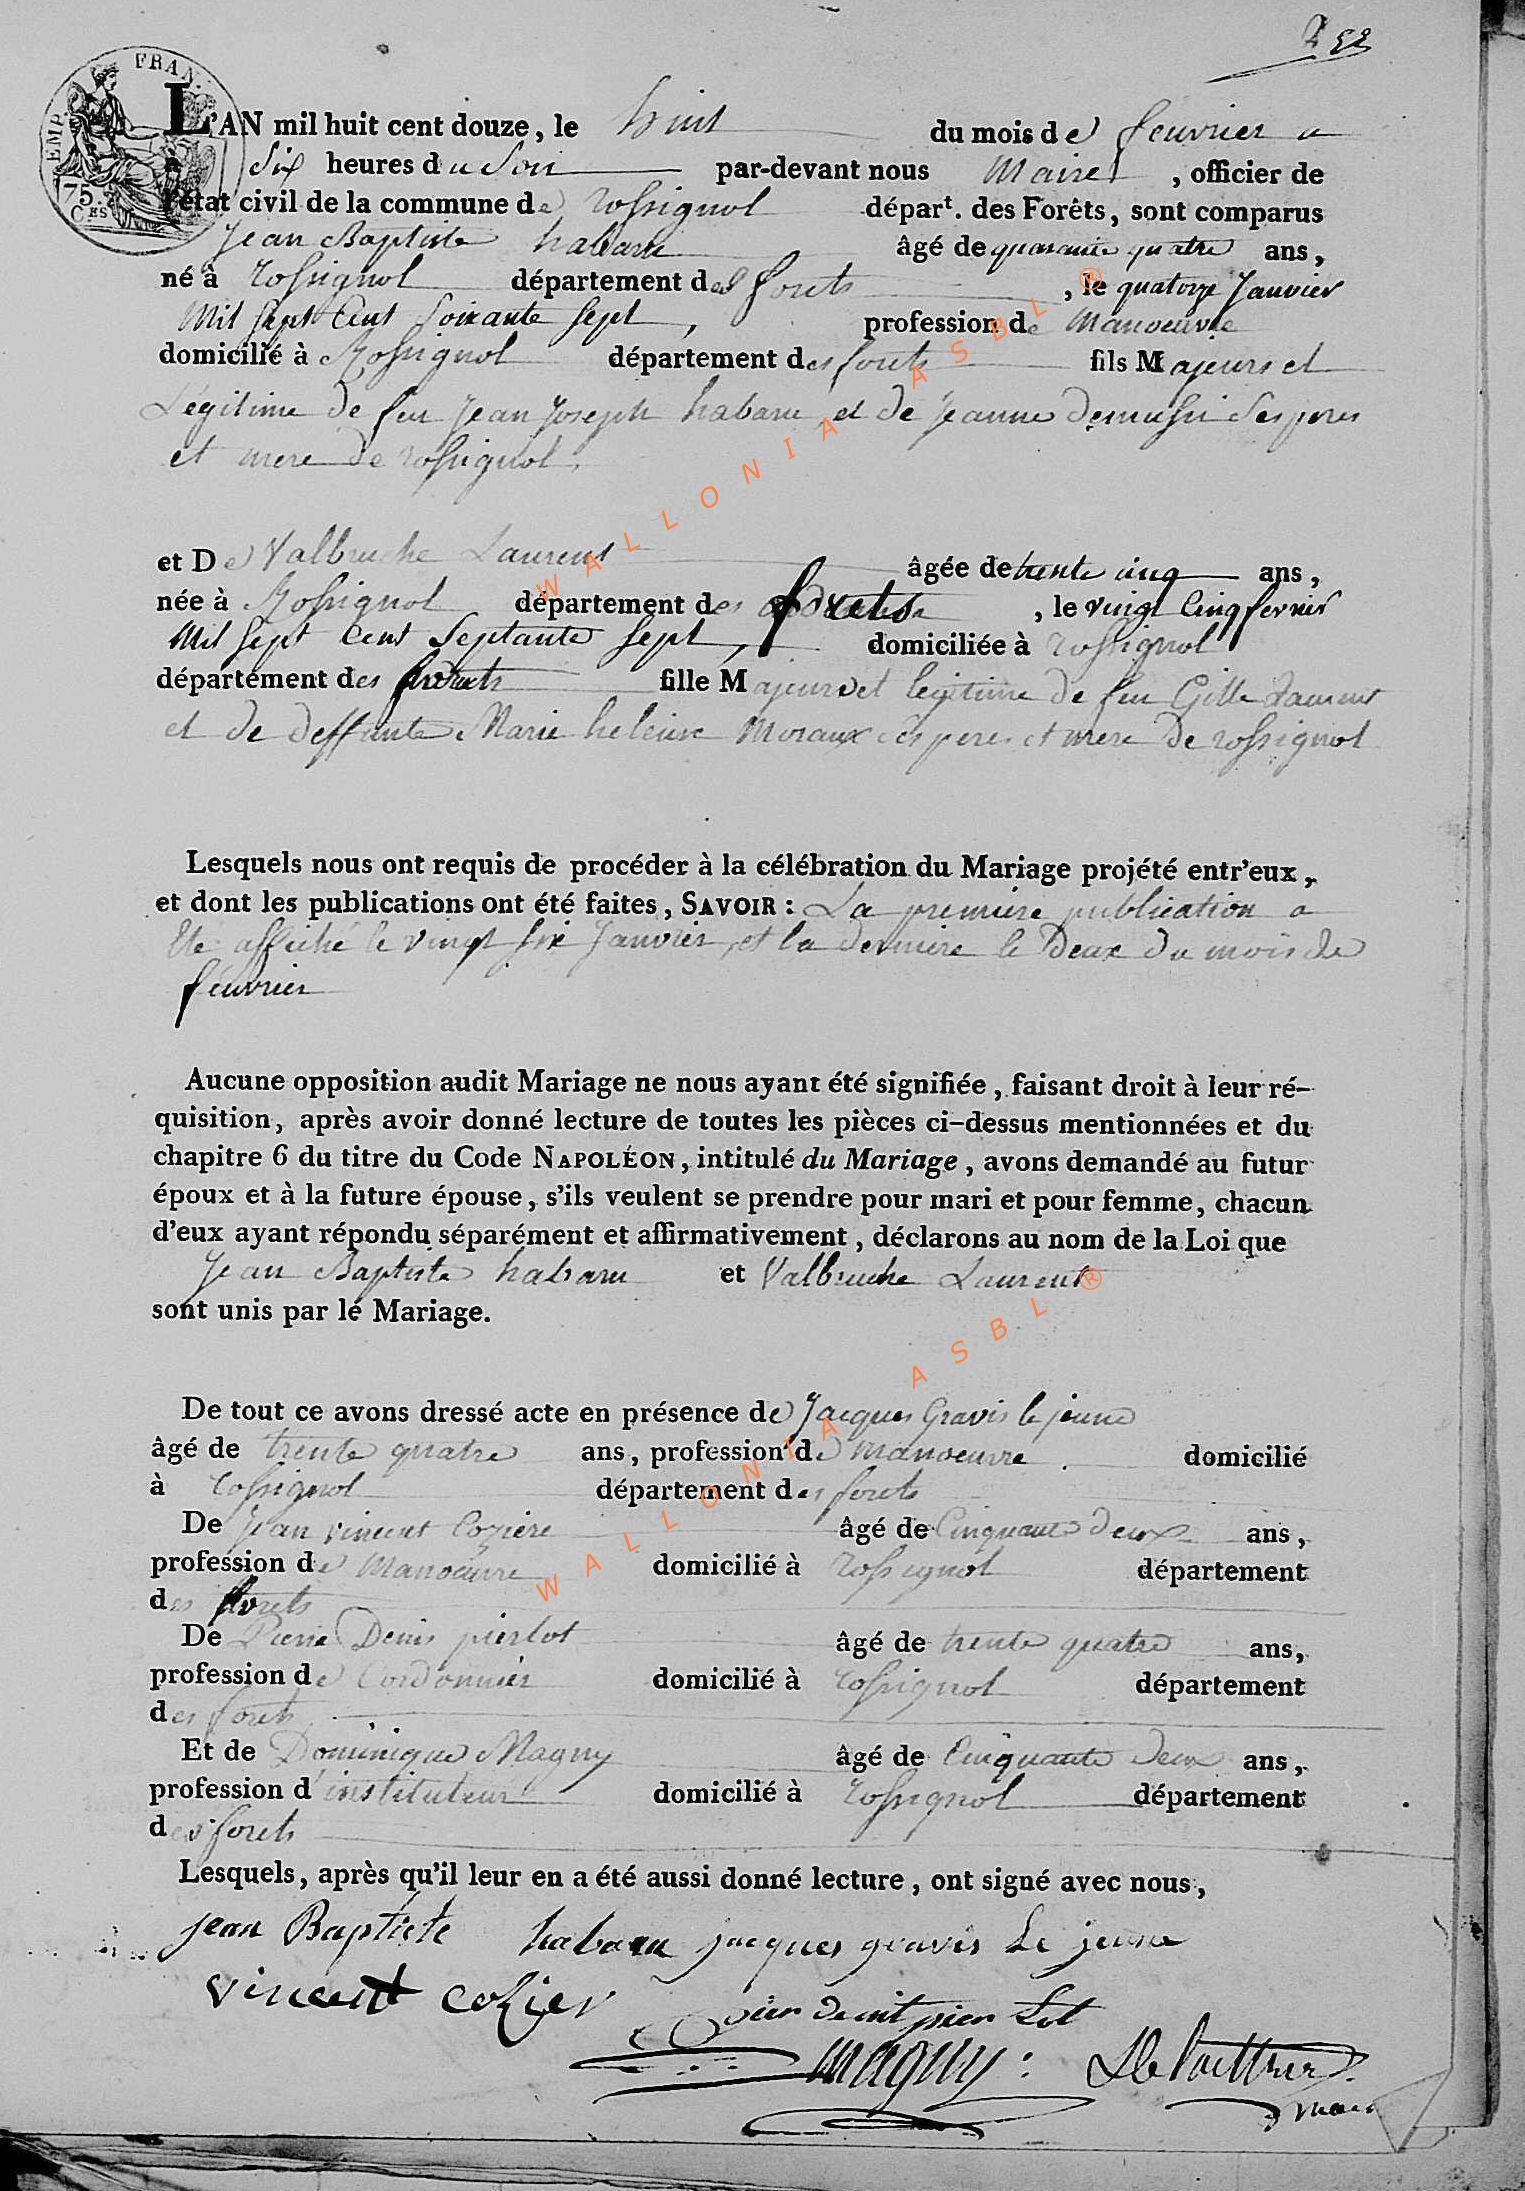 252
EMP. FRAN.
75. CES
L'AN mil huit cent douze, le huit du mois de feuvrier a
six heures du Soir par-devant nous Maire, officier de
l'état civil de la commune de rossignolépart. des Forêts, sont comparus
Jean Baptiste habaru âgé de quarante quatre ans,
né à rossignol département des forets, le quatorze Janvier
Mil Sept Cent Soixante Sept, profession de Manoeuvre
domicilié à Rossignol département des forets fils Majeurs et
Legitime de feu Jean Joseph habaru et de Jeanne demussi Ses peres
et mere de rossignol.
et De Valbruche Laurent âgée de trente cinq ans,
née à Rossignol département des forets, le vingt Cinq fevrier
Mil Sept Cent Septante Sept, domiciliée à rossignol
département des forets fille Majeure et legitime de feu Gille Laurent
et de deffunte Marie heleine Moraux Ses peres et mere de rossignol
Lesquels nous ont requis de procéder à la célébration du Mariage projété entr'eux,
et dont les publications ont été faites, SAVOIR : La premiere publication a
Eté affiché le vingt six Janvier, et la derniere le Deux du mois de
feuvrier
Aucune opposition audit Mariage ne nous ayant été signifiée, faisant droit à leur ré-
quisition, après avoir donné lecture de toutes les pièces ci-dessus mentionnées et du
chapitre 6 du titre du Code NAPOLÉON, intitulé du Mariage, avons demandé au futur
époux et à la future épouse, s'ils veulent se prendre pour mari et pour femme, chacun
d'eux ayant répondu séparément et affirmativement, déclarons au nom de la Loi que
Jean Baptiste habaru et Valbruche Laurent
sont unis par le Mariage.
De tout ce avons dressé acte en présence de Jacques Gravis le jeune
âgé de trente quatre ans, profession de manoeuvre domicilié
à rossignol département des forets
De Jean vincent Cozière âgé de Cinquante deux ans,
profession de Manoeuvre domicilié à rossignol département
des forets
De Pierre Denis pierlot âgé de trente quatre ans,
profession de Cordonnier domicilié à rossignol département
des forets
Et de Dominique Magny âgé de Cinquante deux ans,
profession d'instituteur domicilié à rossignol département
des forets
Lesquels, après qu'il leur en a été aussi donné lecture, ont signé avec nous,
jean Baptiste habaru jacques gravis le jeune
vincent cozier
pier denit pier Lot
magny :
maire
WALLONIA ASBL ®
WALLONIA ASBL ®